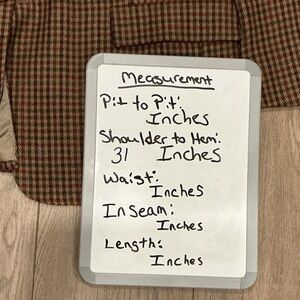 Measurement
Pit to Pit:
Inches
Shoulder to Hem:
31 Inches
Waist:
Inches
Inseam:
Inches
Length:
Inches